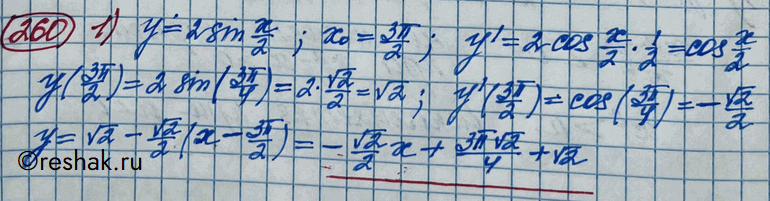 260 1) y = 2 sin x/2 ; x₀ = 3π/2 ; y' = 2·cos x/2 · 1/2 = cos x/2
y(3π/2) = 2 sin(3π/4) = 2·√2/2 = √2 ; y'(3π/2) = cos(3π/4) = -√2/2
y = √2 - √2/2 (x - 3π/2) = -√2/2 x + 3π√2/4 + √2
©reshak.ru